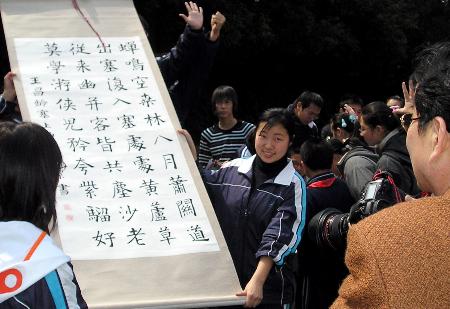 蟬鳴空桑林八月蕭關道
出塞復入塞處處黃蘆草
從來幽并客皆共塵沙老
莫學游俠兒矜夸紫騮好
王昌齡塞
書